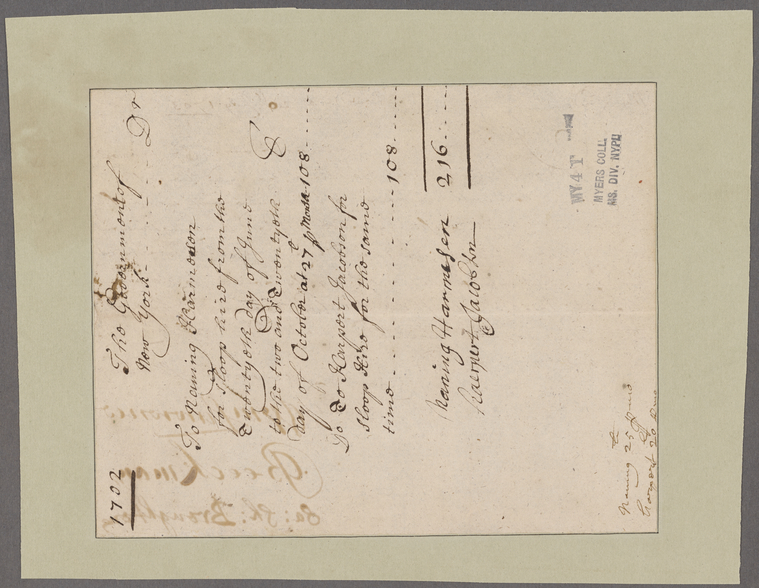 1702
The Government of
New York - - - - Dr
To Naning Harmeson
for Sloop hire from the
twentyeth day of June
to the two and twentyeth £
day of October at 27 £ p Month 108 - -
Do To Harpert Jacobson for
Sloop hire for the same
time - - - - - - - - 108 - -
216 - -
Naning Harmesen
Harpert Jacobsen
Naning 25 June
&
Harpert 20 June
MY 4 T
MYERS COLL.
MS. DIV. NYPL
Beeckman